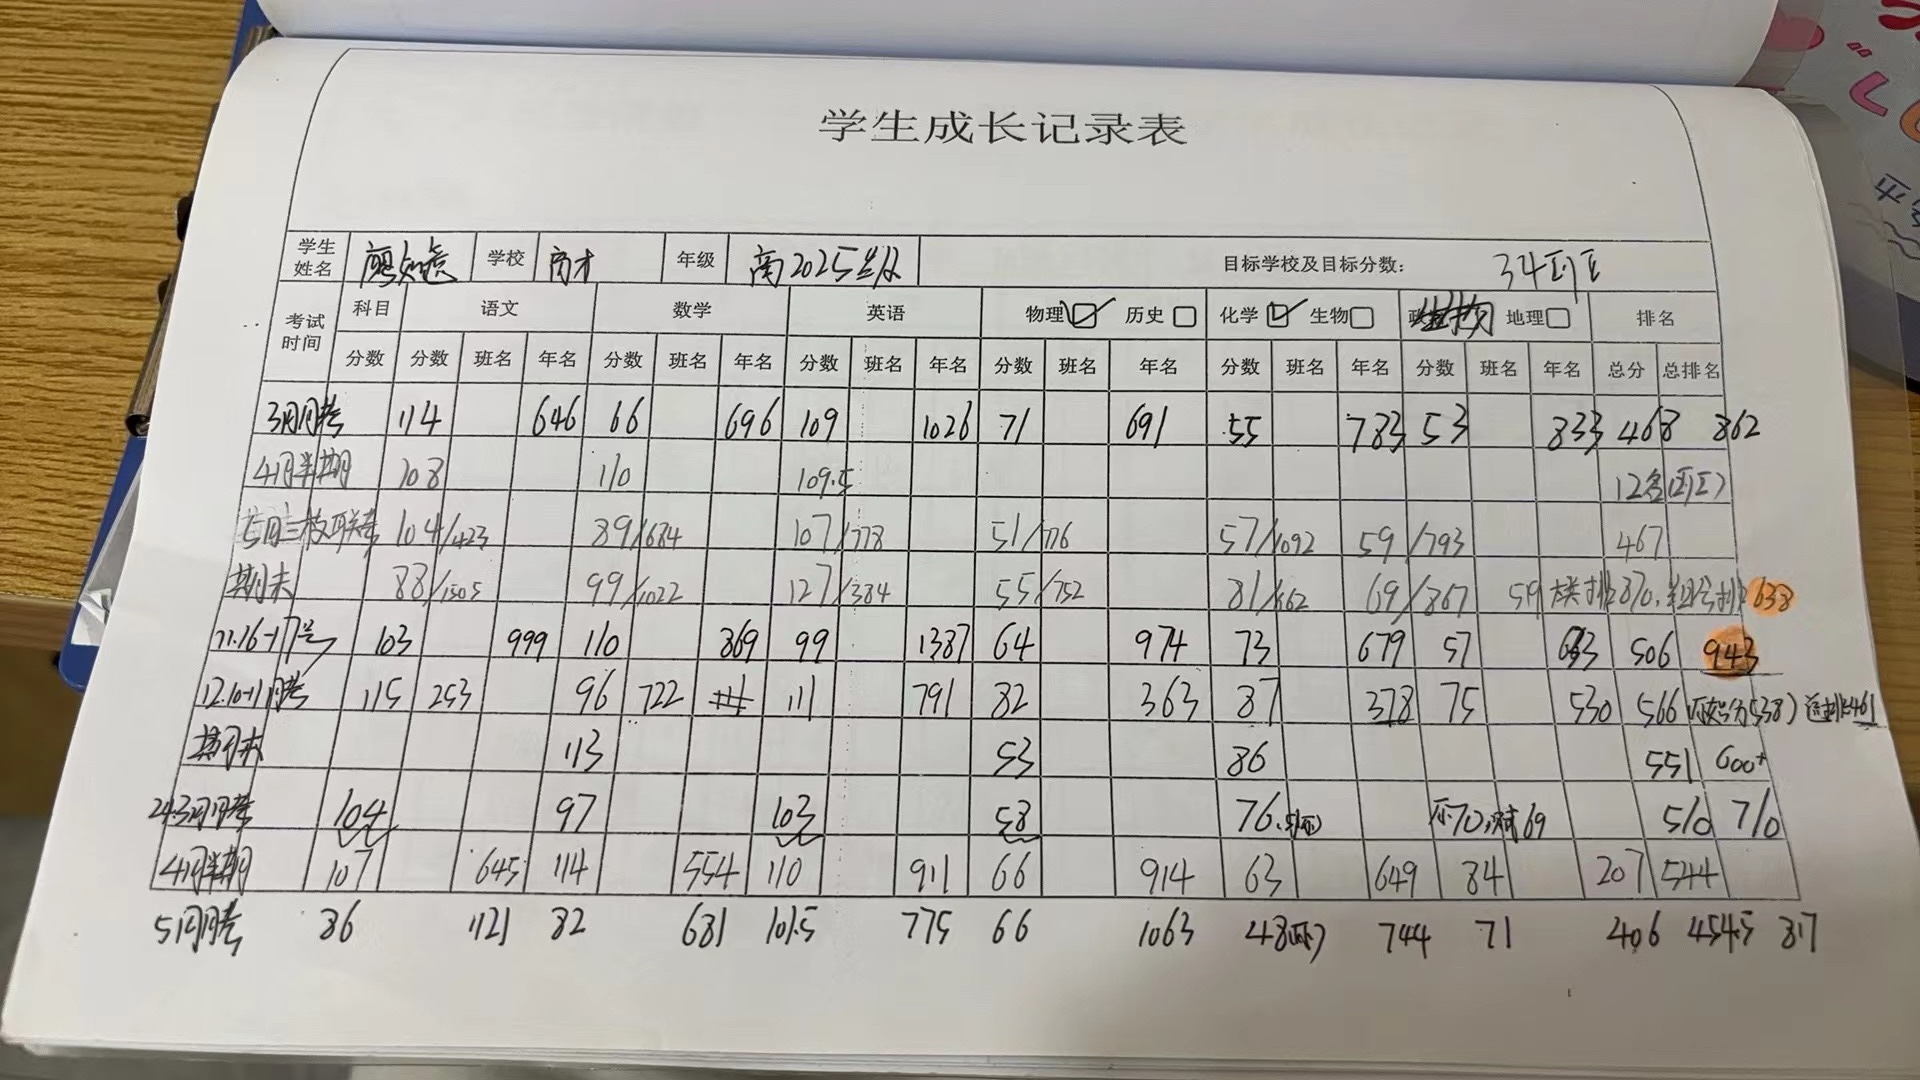 学生成长记录表
学生姓名 廖知 学校 育才 年级 高2025级 目标学校及目标分数：
考试时间 科目 语文 数学 英语 物理 历史 化学 生物 地理 排名
分数 分数 班名 年名 分数 班名 年名 分数 班名 年名 分数 班名 年名 分数 班名 年名 分数 班名 年名 总分 总排名
3月月考 114 646 66 696 109 1026 71 691 55 783 53 833 468 862
4月半期 108 110 109.5 12名
5月三校联考 104/423 89/684 107/778 51/776 57/1092 59/793 467
期末 88/1505 99/1022 127/384 55/752 81/562 69/867 59 638
11.16-17号 103 999 110 869 99 1387 64 974 73 679 57 506 943
12.10-11月考 115 253 96 722 111 791 82 363 87 378 75 530 566 538) 461
期末 113 53 86 551 600+
24.3月月考 104 97 103 58 76.5 70 69 510 710
4月半期 107 645 114 554 110 911 66 914 63 649 84 207 544
5月月考 86 1121 82 681 101.5 775 66 1063 48 744 71 406 454.5 817